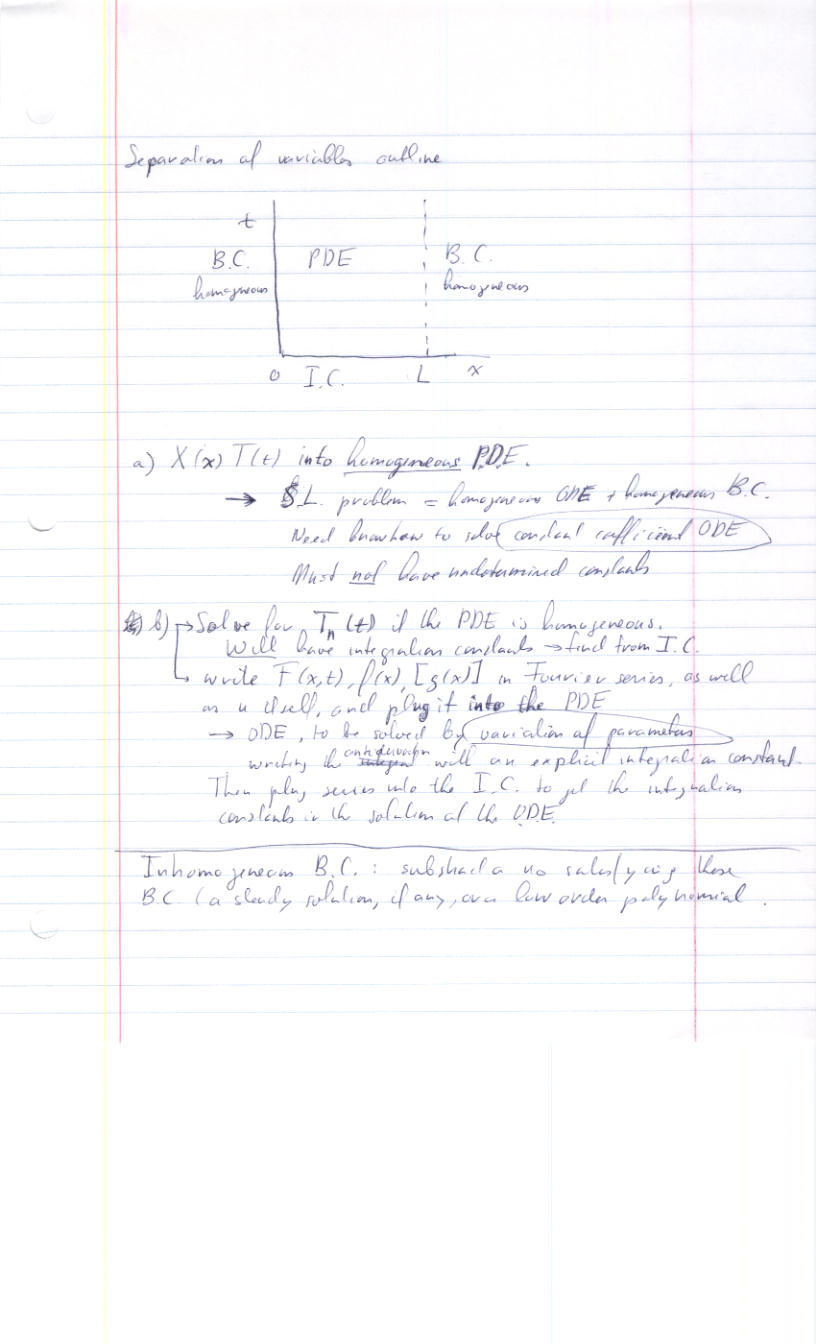 Separation of variables outline
t
B.C. PDE B.C.
homogneous homogneous
0 I.C. L x
a) X(x) T(t) into homogeneous P.D.E.
→ S.L. problem = homogeneous ODE + homogeneous B.C.
Need know how to solve constant coefficient ODE
Must not have undetermined constants
b) → Solve for Tn(t) if the PDE is homogeneous.
Will have integration constants → find from I.C.
→ write F(x,t), f(x), [g(x)] in Fourier series, as well
as u itself, and plug it into the PDE
→ ODE, to be solved by variation of parameters
writing the antiderivation with an explicit integration constant.
Then plug series into the I.C. to get the integration
constants in the solution of the ODE.
Inhomogeneous B.C.: substract a u0 satisfying these
B.C. (a steady solution, if any, or a low order polynomial.